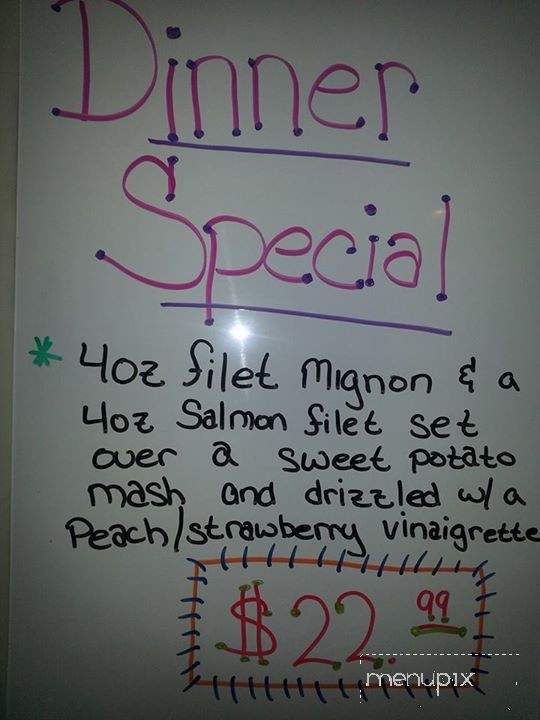 Dinner
Special
* 4oz filet Mignon & a
4oz Salmon filet set
over a sweet potato
mash and drizzled w/a
Peach/strawberry vinaigrette
$22.99
menupix